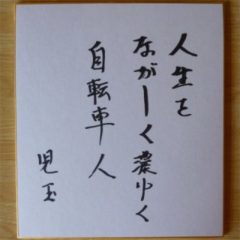 人生を
ながーく濃ゆく
自転車人
児玉